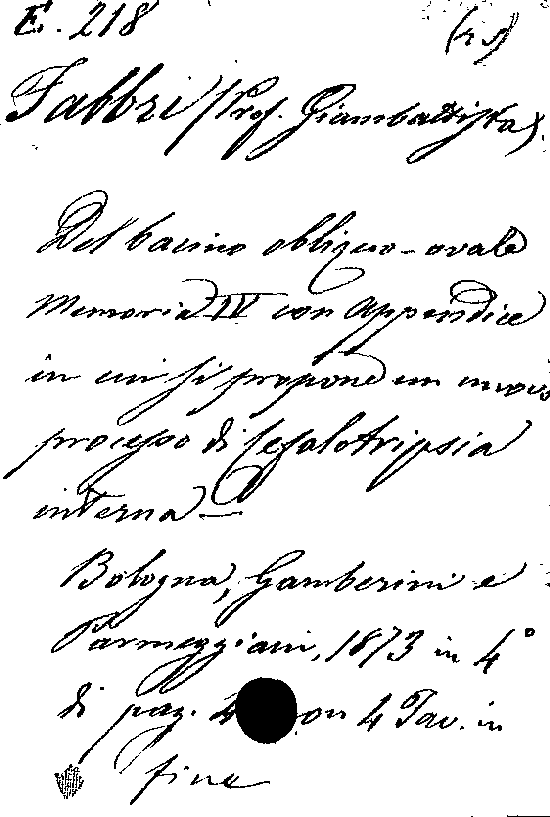 E. 218 (r s)
Fabbri (Prof. Giambattista).
Del bacino obliquo-ovale
Memoria IV con appendice
in cui si propone un nuovo
processo di Cefalotripsia
interna —
Bologna, Gamberini e
Parmeggiani, 1873 in 4°
di pag. con 4 Tav. in
fine